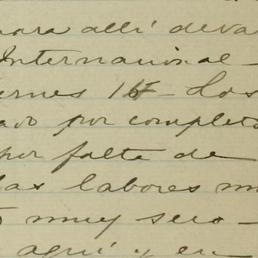 para allí deva
Internacional -
ernes 16 - Los
por completo
por falta de
las labores m
muy seco -
aquí y en